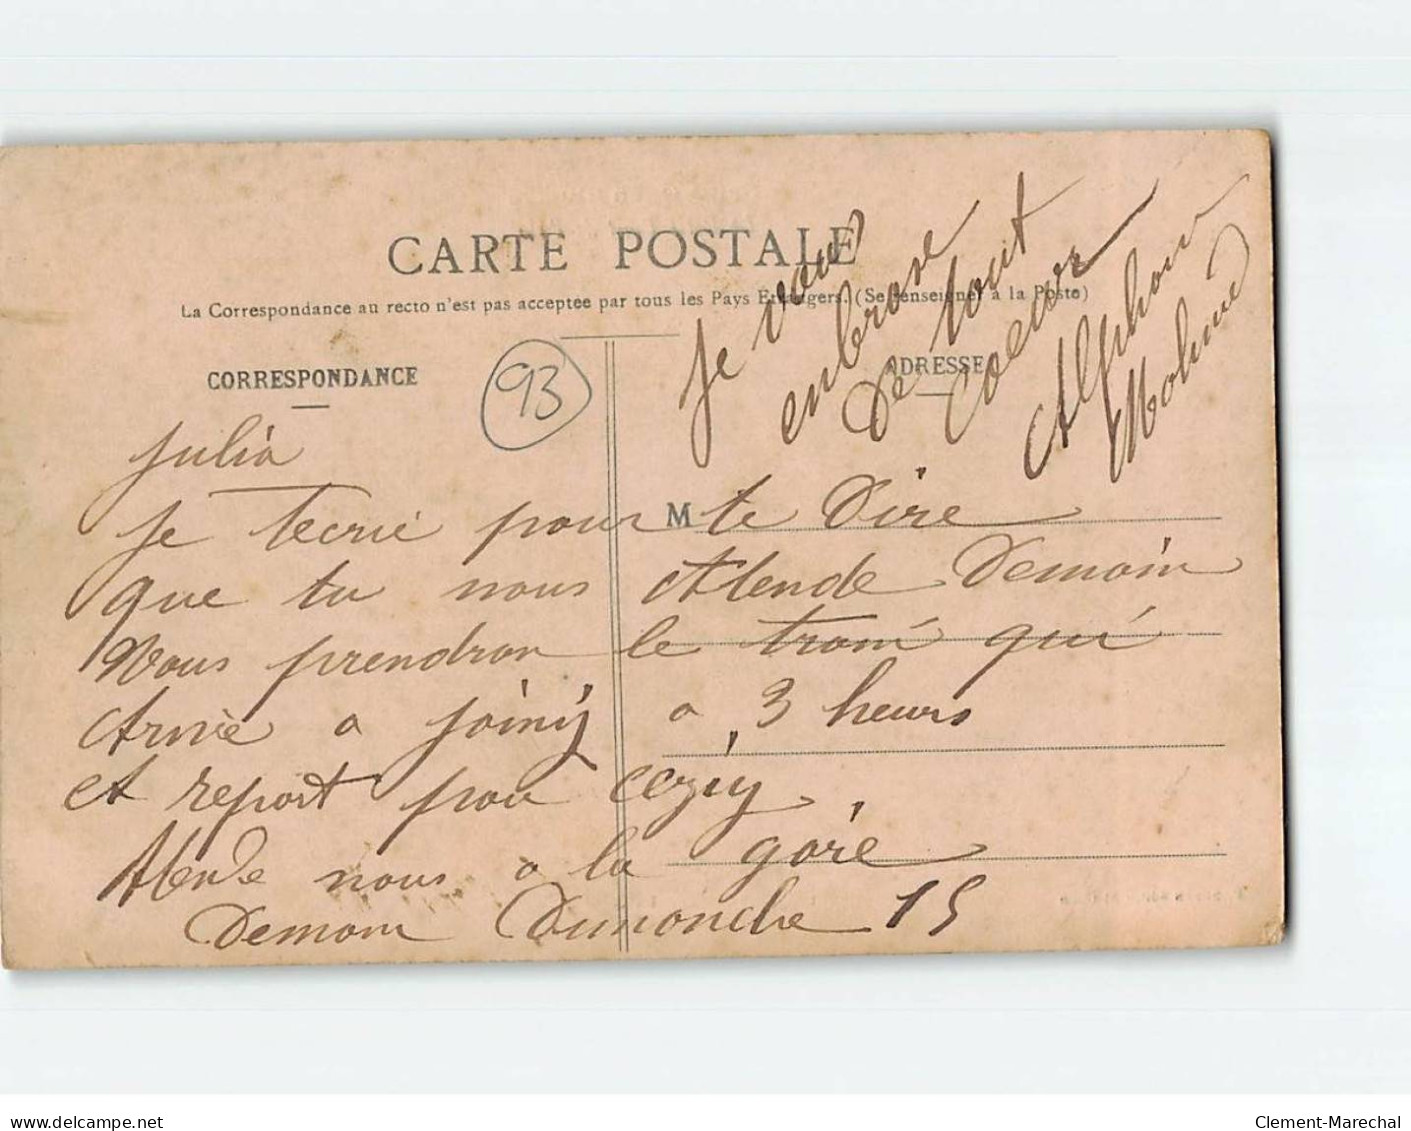 CARTE POSTALE
La Correspondance au recto n'est pas acceptée par tous les Pays Étrangers. (Se renseigner à la Poste)
CORRESPONDANCE
ADRESSE
93
Julia
Je tecrie pour te Dire
M
que tu nous Atende Demain
Nous prendron le train qui
Arive a joiniy a 3 heurs
et repart pour ceziy
Atende nous a la gare
Demain Dimanche 15
Je vous
enbrase
De tout
Coeur
delcampe.net
Clement-Marechal